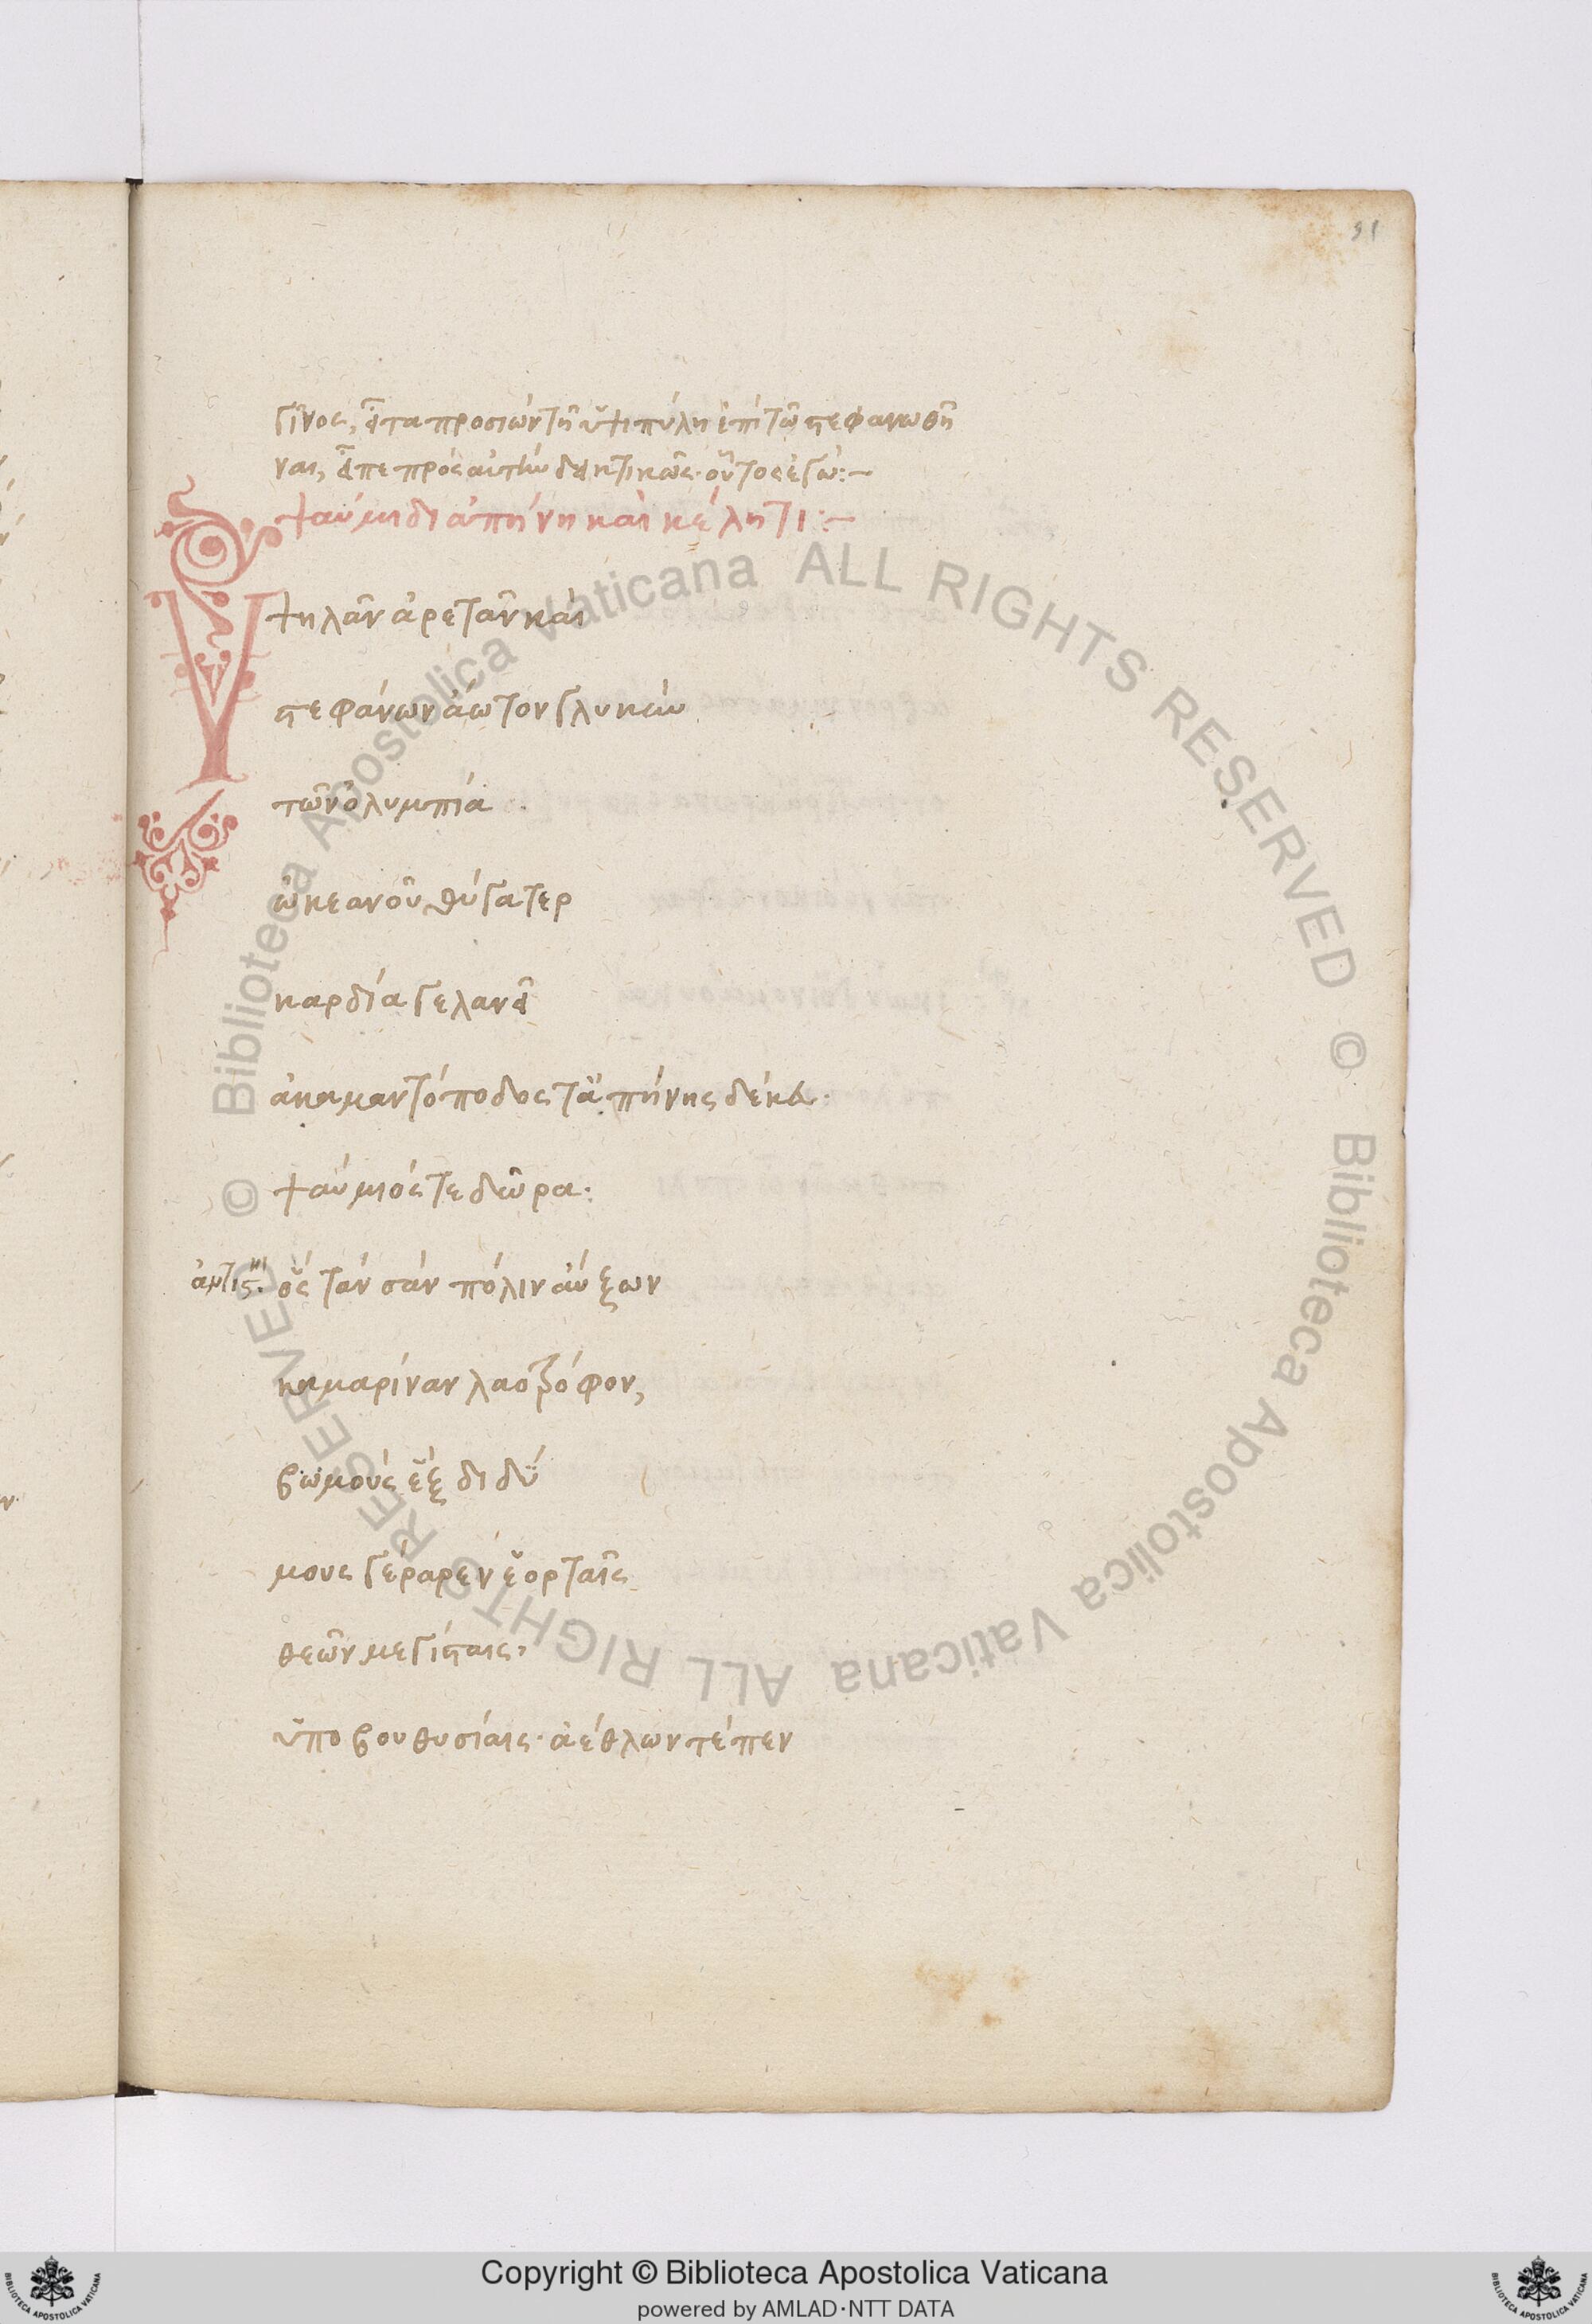 91
Γῖνος, εἶτα προσιὼν τῆ ὑψιπύλη ἐπὶ τῶ στεφανωθῆ
ναι, εἶπε πρὸς αὐτὴν δηκτικῶς· οὗτος ἐγώ:—
ψαύμιδι ἀπήνη καὶ κέλητι:—
Υ
ψηλᾶν ἀρετᾶν καὶ
στεφάνων ἄωτον γλυκὺν
τῶν ὀλυμπία
ὠκεανοῦ θύγατερ
καρδία γελανεῖ
ἀκαμαντόποδος τ᾽ ἀπήνης δέκευ·
ψαύμιός τε δῶρα·
ἀντιστ. ὃς τὰν σὰν πόλιν αὔξων
καμαρίναν λαοτρόφον,
βωμοὺς ἓξ διδύ
μους γέραρεν ἑορταῖς
θεῶν μεγίσταις,
ὑπο βουθυσίαις· ἀέθλων τέ πεν
© Biblioteca Apostolica Vaticana ALL RIGHTS RESERVED © Biblioteca Apostolica Vaticana ALL RIGHTS RESERVED
Copyright © Biblioteca Apostolica Vaticana
powered by AMLAD·NTT DATA
BIBLIOTECA APOSTOLICA VATICANA
BIBLIOTECA APOSTOLICA VATICANA